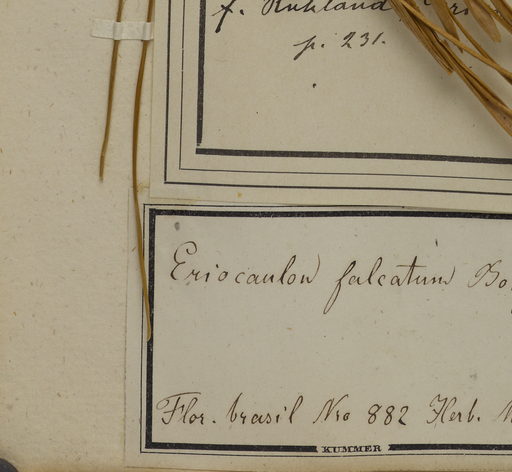 f. Ruhland
p. 231.
Eriocaulon falcatum
Flor. brasil Nro 882 Herb.
KUMMER